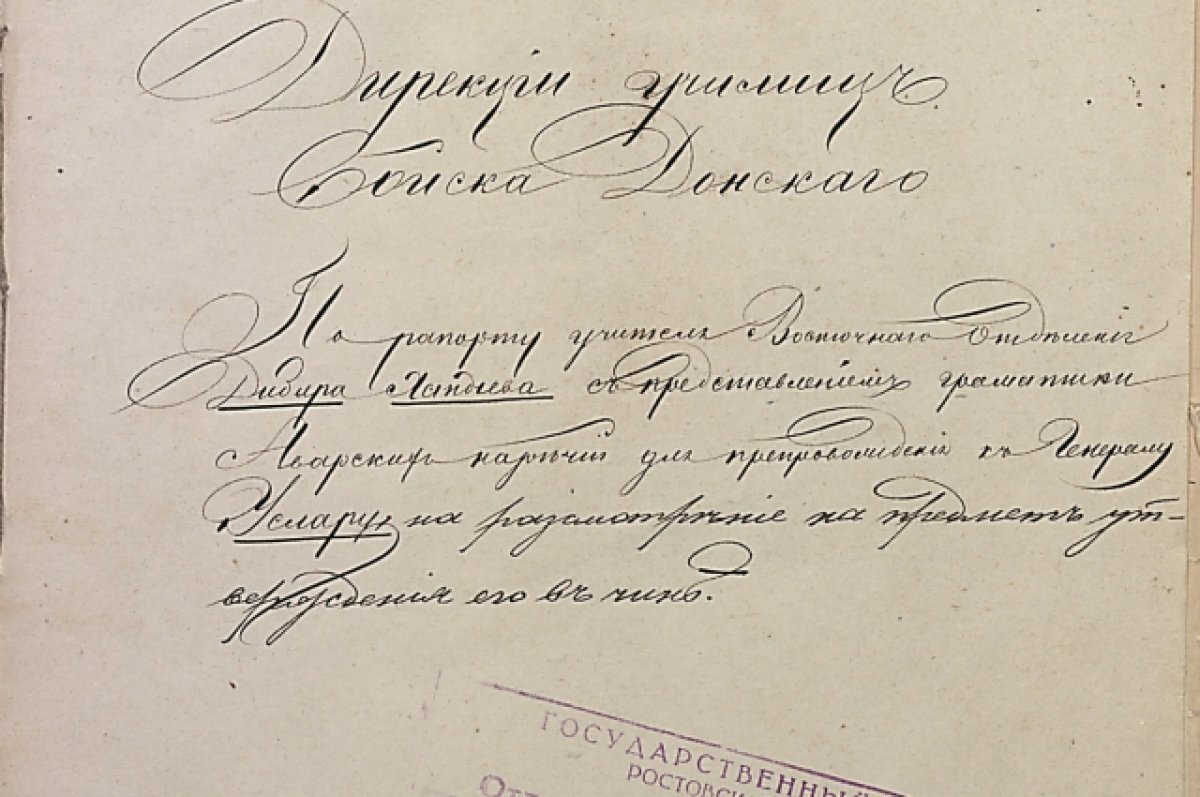 Дирекціи училищъ
Войска Донскаго
По рапорту учителя Восточнаго Отдѣленія
Дибира
съ представленіемъ граматики
Аварскихъ нарѣчій для препровожденія къ Генералу
Услару, на разсмотрѣніе на предметъ ут-
вержденія его въ чинѣ.
ГОСУДАРСТВЕННЫЙ
РОСТОВС